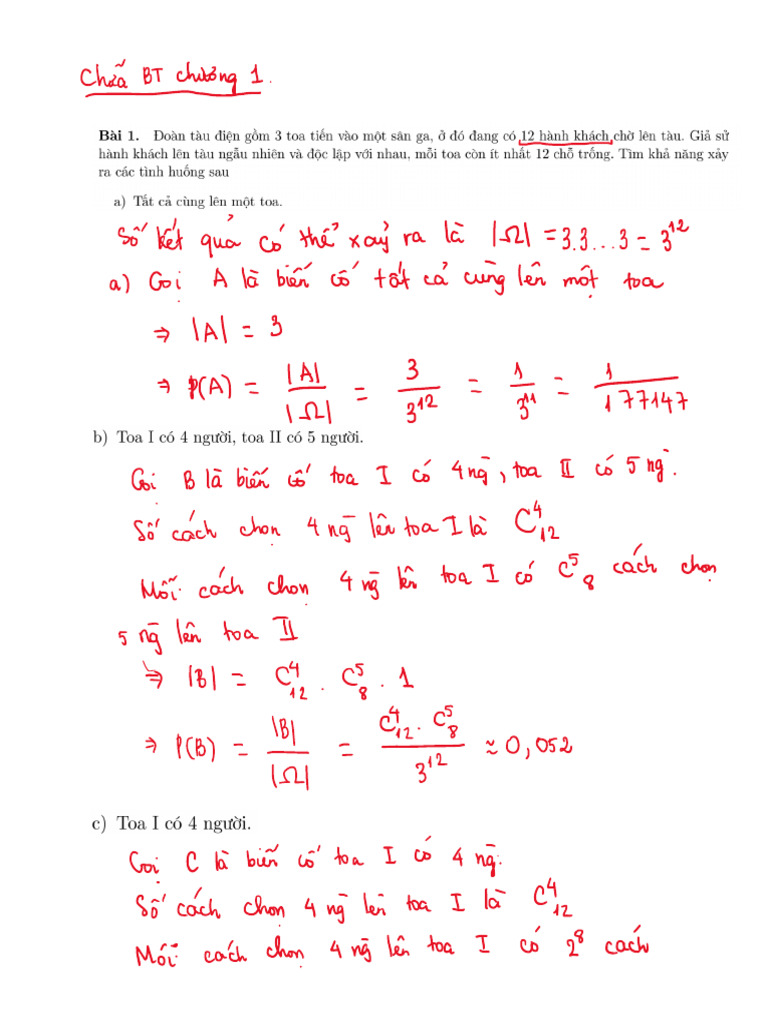 Chữa BT chương 1.
Bài 1. Đoàn tàu điện gồm 3 toa tiến vào một sân ga, ở đó đang có 12 hành khách chờ lên tàu. Giả sử
hành khách lên tàu ngẫu nhiên và độc lập với nhau, mỗi toa còn ít nhất 12 chỗ trống. Tìm khả năng xảy
ra các tình huống sau
a) Tất cả cùng lên một toa.
Số kết quả có thể xảy ra là |Ω| = 3.3...3 = 3^12
a) Gọi A là biến cố tất cả cùng lên một toa
⇒ |A| = 3
⇒ P(A) = |A| / |Ω| = 3 / 3^12 = 1 / 3^11 = 1 / 177147
b) Toa I có 4 người, toa II có 5 người.
Gọi B là biến cố toa I có 4 ng, toa II có 5 ng.
Số cách chọn 4 ng lên toa I là C^4_12
Mỗi cách chọn 4 ng lên toa I có C^5_8 cách chọn
5 ng lên toa II
⇒ |B| = C^4_12 . C^5_8 . 1
⇒ P(B) = |B| / |Ω| = C^4_12 . C^5_8 / 3^12 ≈ 0,052
c) Toa I có 4 người.
Gọi C là biến cố toa I có 4 ng.
Số cách chọn 4 ng lên toa I là C^4_12
Mỗi cách chọn 4 ng lên toa I có 2^8 cách